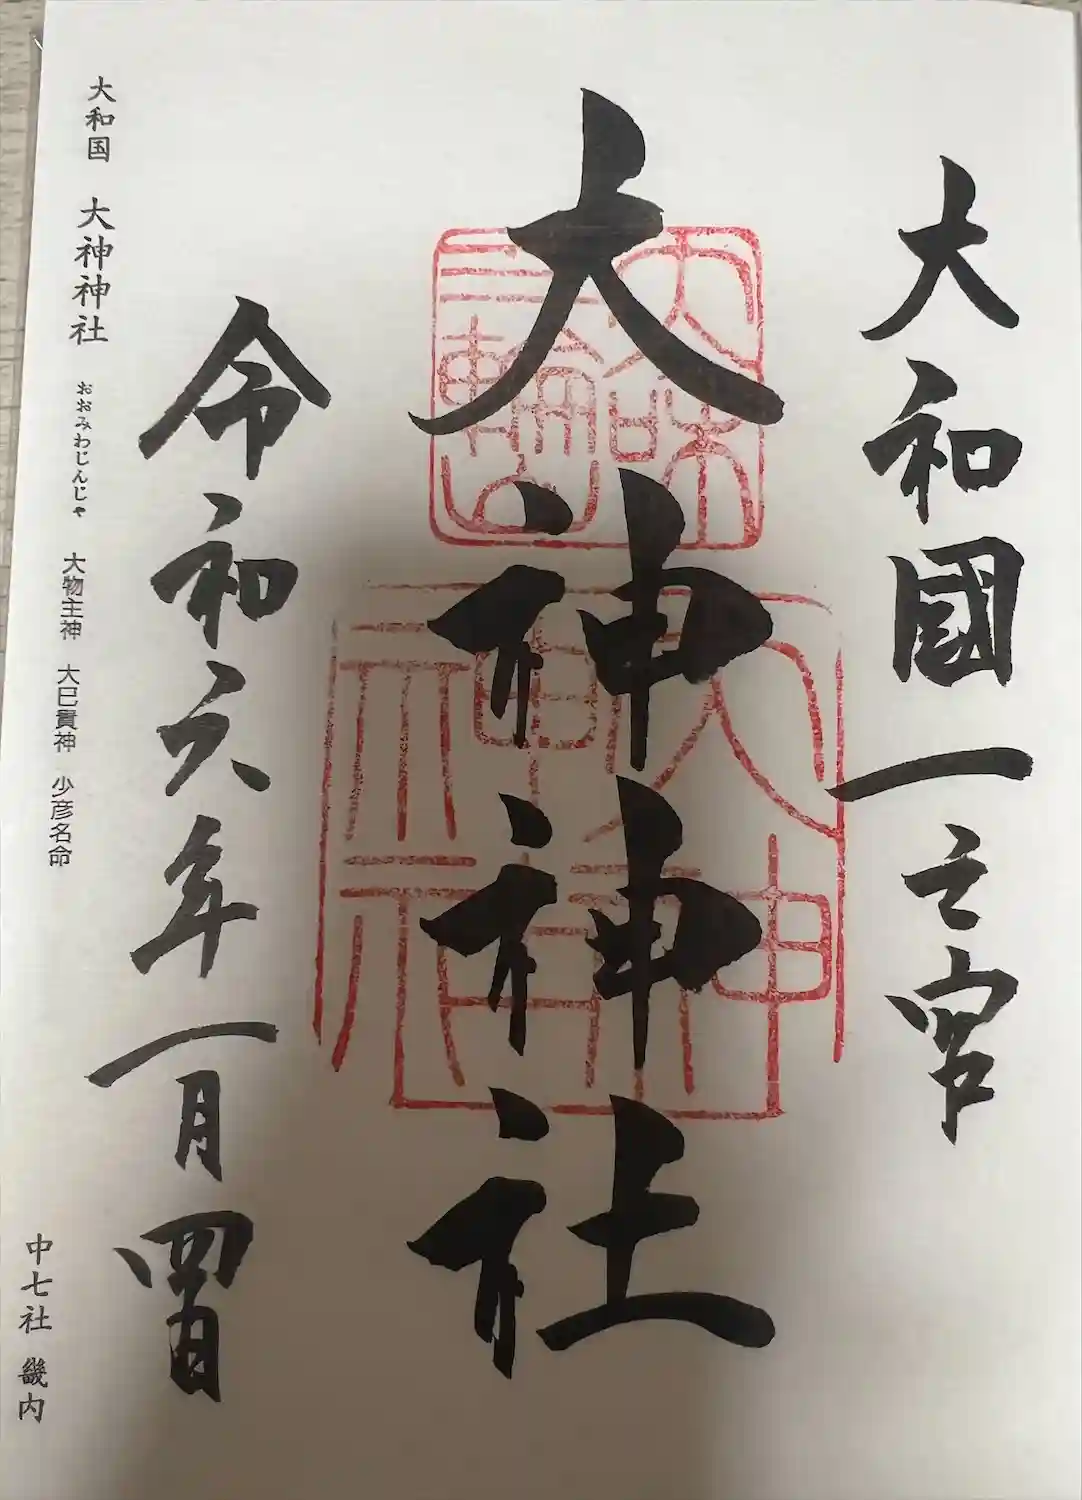 大和國一之宮
大神神社
令和六年一月四日
大和国 大神神社 おおみわじんじゃ 大物主神 大巳貴神 少彦名命
中七社 畿内
大神神社